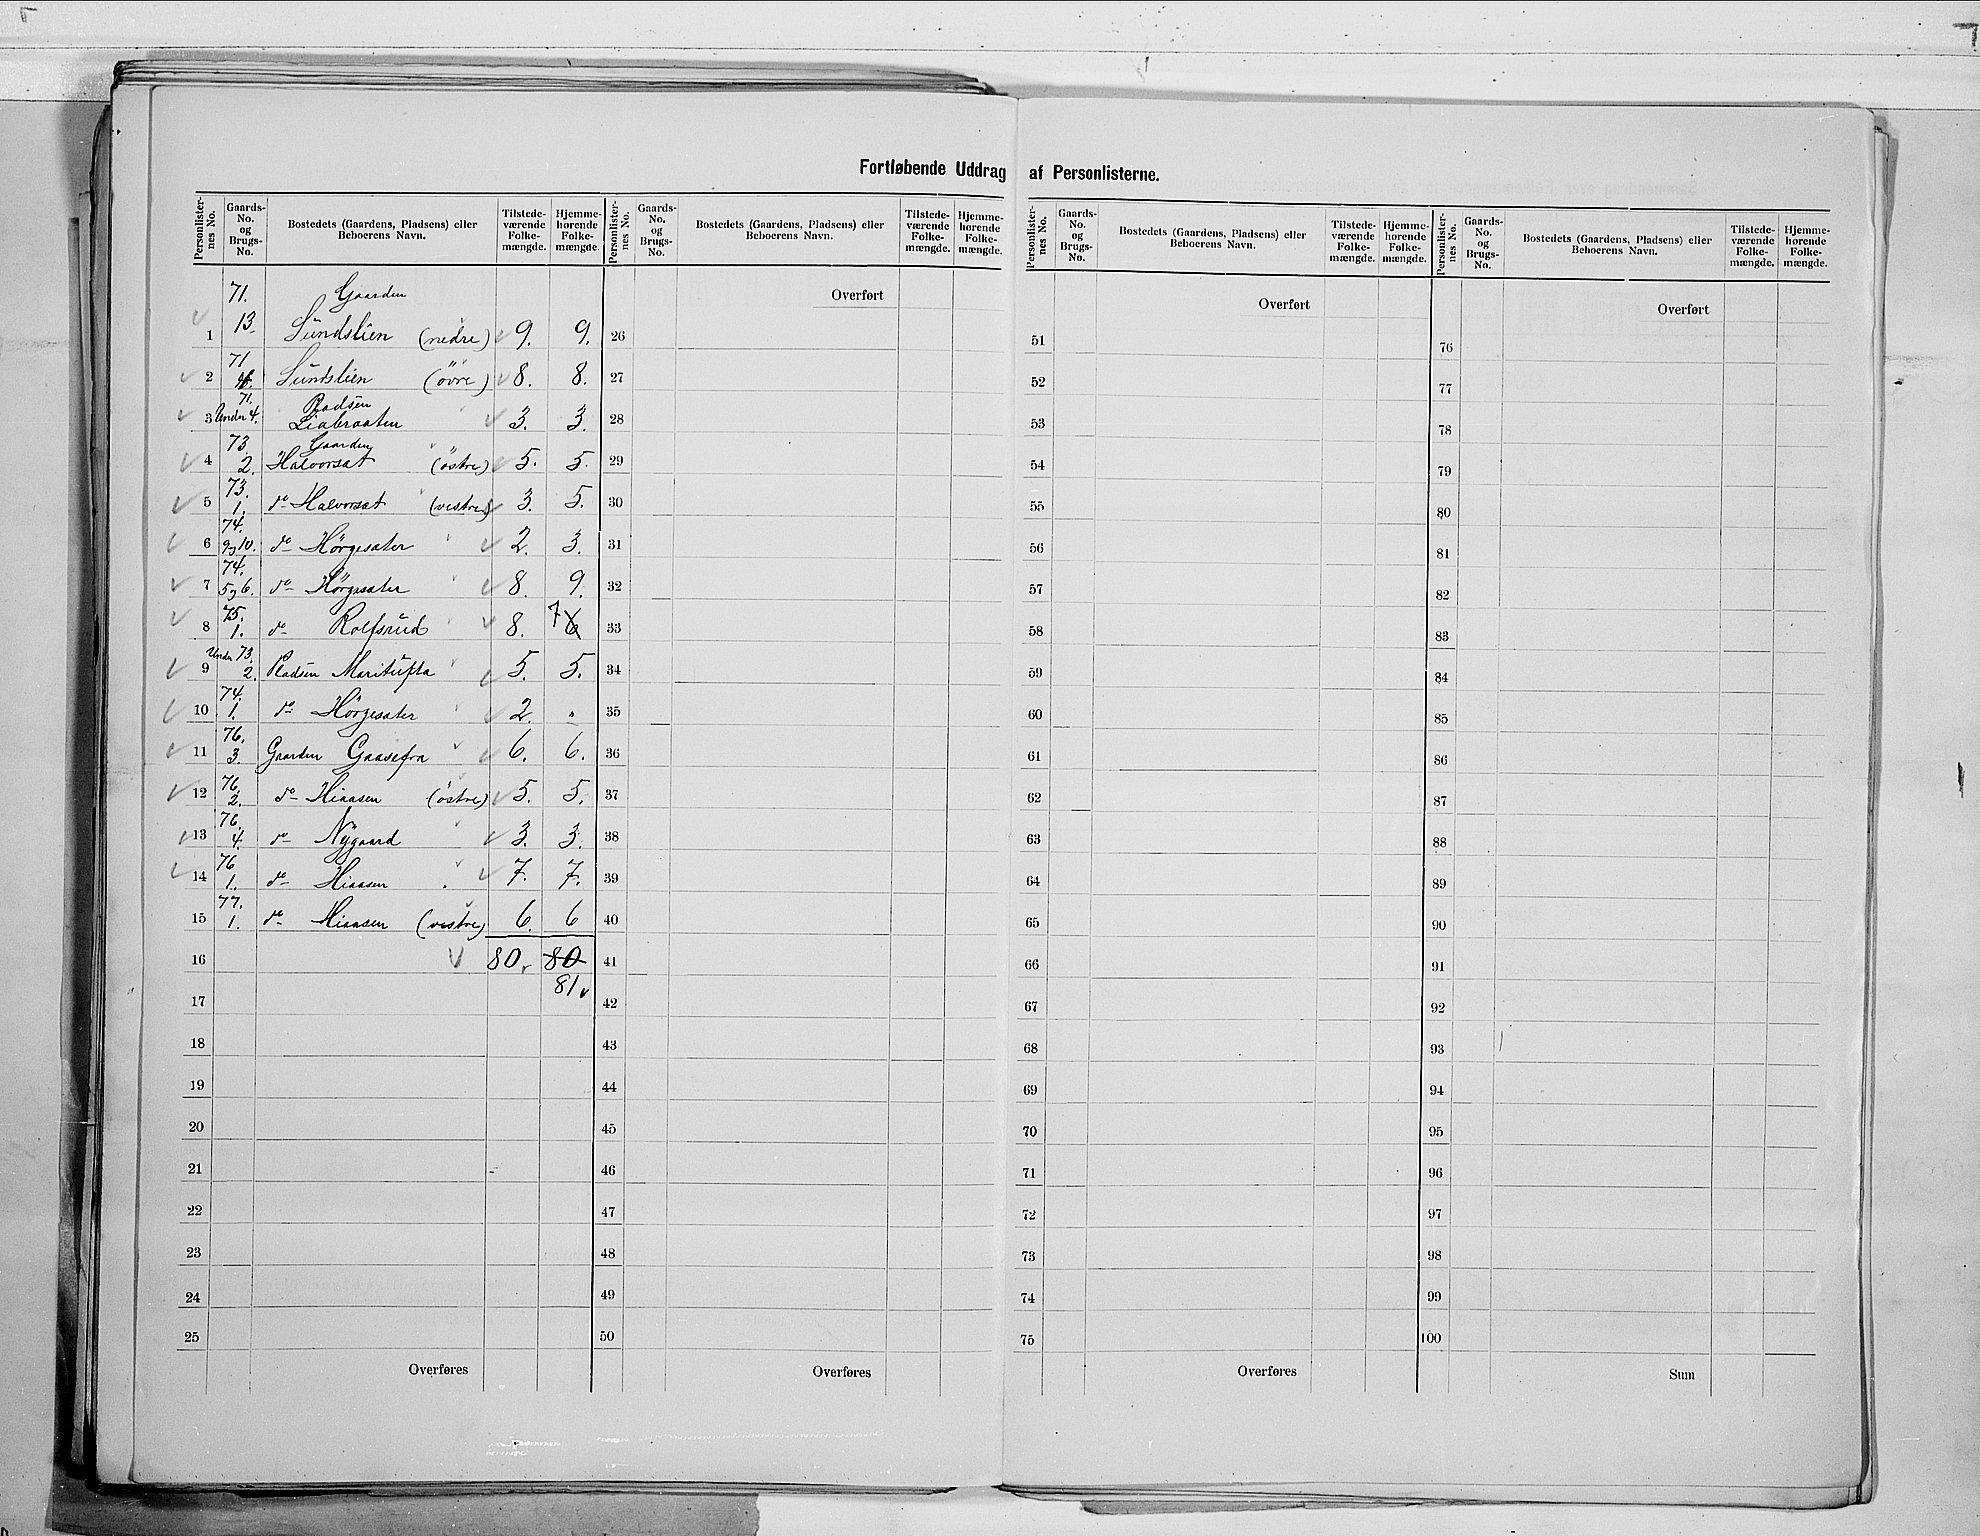 Fortløbende Uddrag af Personlisterne.
Personlister-nes No. | Gaards-No. og Brugs-No. | Bostedets (Gaardens, Pladsens) eller Beboerens Navn. | Tilstede-værende Folke-mængde. | Hjemme-hørende Folke-mængde.
Personlister-nes No. | Gaards-No. og Brugs-No. | Bostedets (Gaardens, Pladsens) eller Beboerens Navn. | Tilstede-værende Folke-mængde. | Hjemme-hørende Folke-mængde.
Personlister-nes No. | Gaards-No. og Brugs-No. | Bostedets (Gaardens, Pladsens) eller Beboerens Navn. | Tilstede-værende Folke-mængde. | Hjemme-hørende Folke-mængde.
Personlister-nes No. | Gaards-No. og Brugs-No. | Bostedets (Gaardens, Pladsens) eller Beboerens Navn. | Tilstede-værende Folke-mængde. | Hjemme-hørende Folke-mængde.
71. Gaarden
1 13. Sundslien (nedre) 9. 9.
71.
2 4. Sundslien (övre) 8. 8.
71. Pladsen
3 Under 4. Liabraaten 3. 3.
73. Gaarden
4 2. Halvorsat (östre) 5. 5.
73.
5 1. do Halvorsat (vestre) 3. 5.
74.
6 9 og 10. do Hörgesater 2. 3.
74.
7 5 og 6. do Hörgesater 8. 9.
75.
8 1. do Rolfsrud 8. 7 6
Under 73.
9 2. Pladsen Maritufta 5. 5.
74.
10 1. do Hörgesater 2. "
76.
11 3. Gaarden Gaasefra 6. 6.
76.
12 2. do Hiaasen (östre) 5. 5.
76.
13 4. do Nygaard 3. 3.
76
14 1. do Hiaasen 7. 7.
77.
15 1. do Hiaasen (vestre) 6. 6
16 80. 80
81
17
18
19
20
21
22
23
24
25
Overføres
Overført
26
27
28
29
30
31
32
33
34
35
36
37
38
39
40
41
42
43
44
45
46
47
48
49
50
Overføres
Overført
51
52
53
54
55
56
57
58
59
60
61
62
63
64
65
66
67
68
69
70
71
72
73
74
75
Overføres
Overført
76
77
78
79
80
81
82
83
84
85
86
87
88
89
90
91
92
93
94
95
96
97
98
99
100
Sum